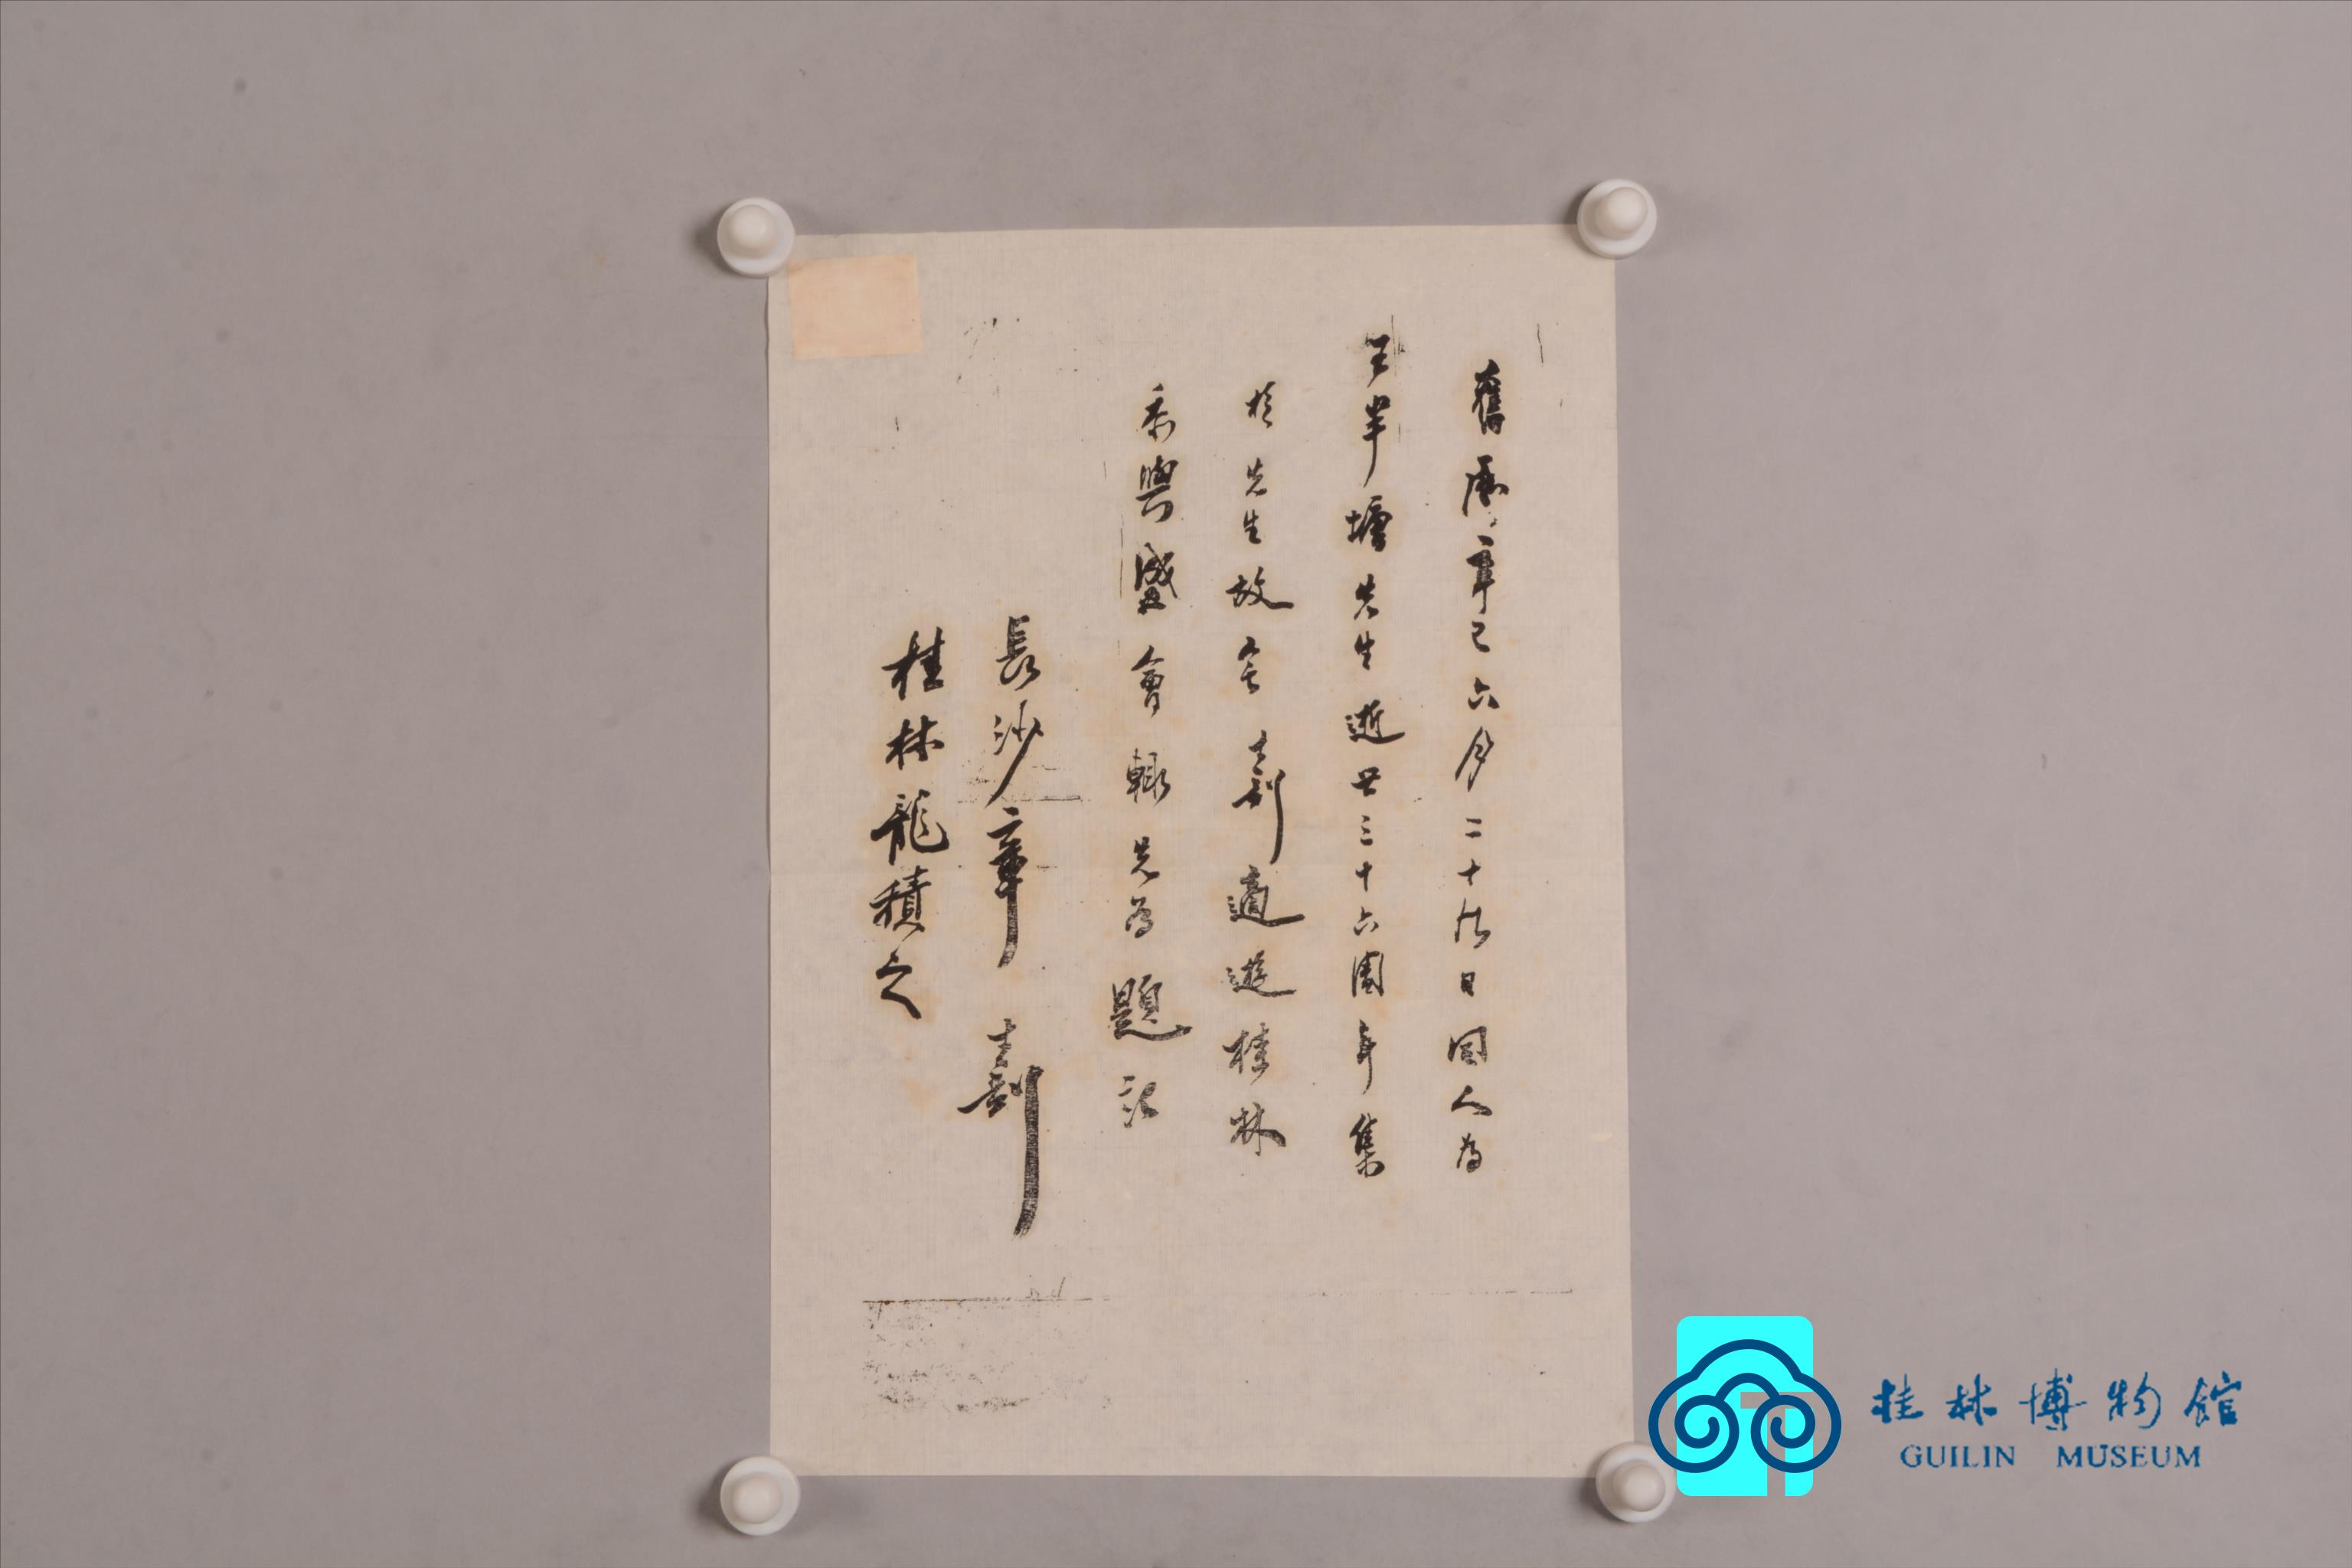 舊曆辛巳六月二十日同人為
王半塘先生逝世三十六周年集
於先生故宅士釗適遊桂林
忝與盛會輙先為題記
長沙章士釗
桂林龍積之
桂林博物館
GUILIN MUSEUM